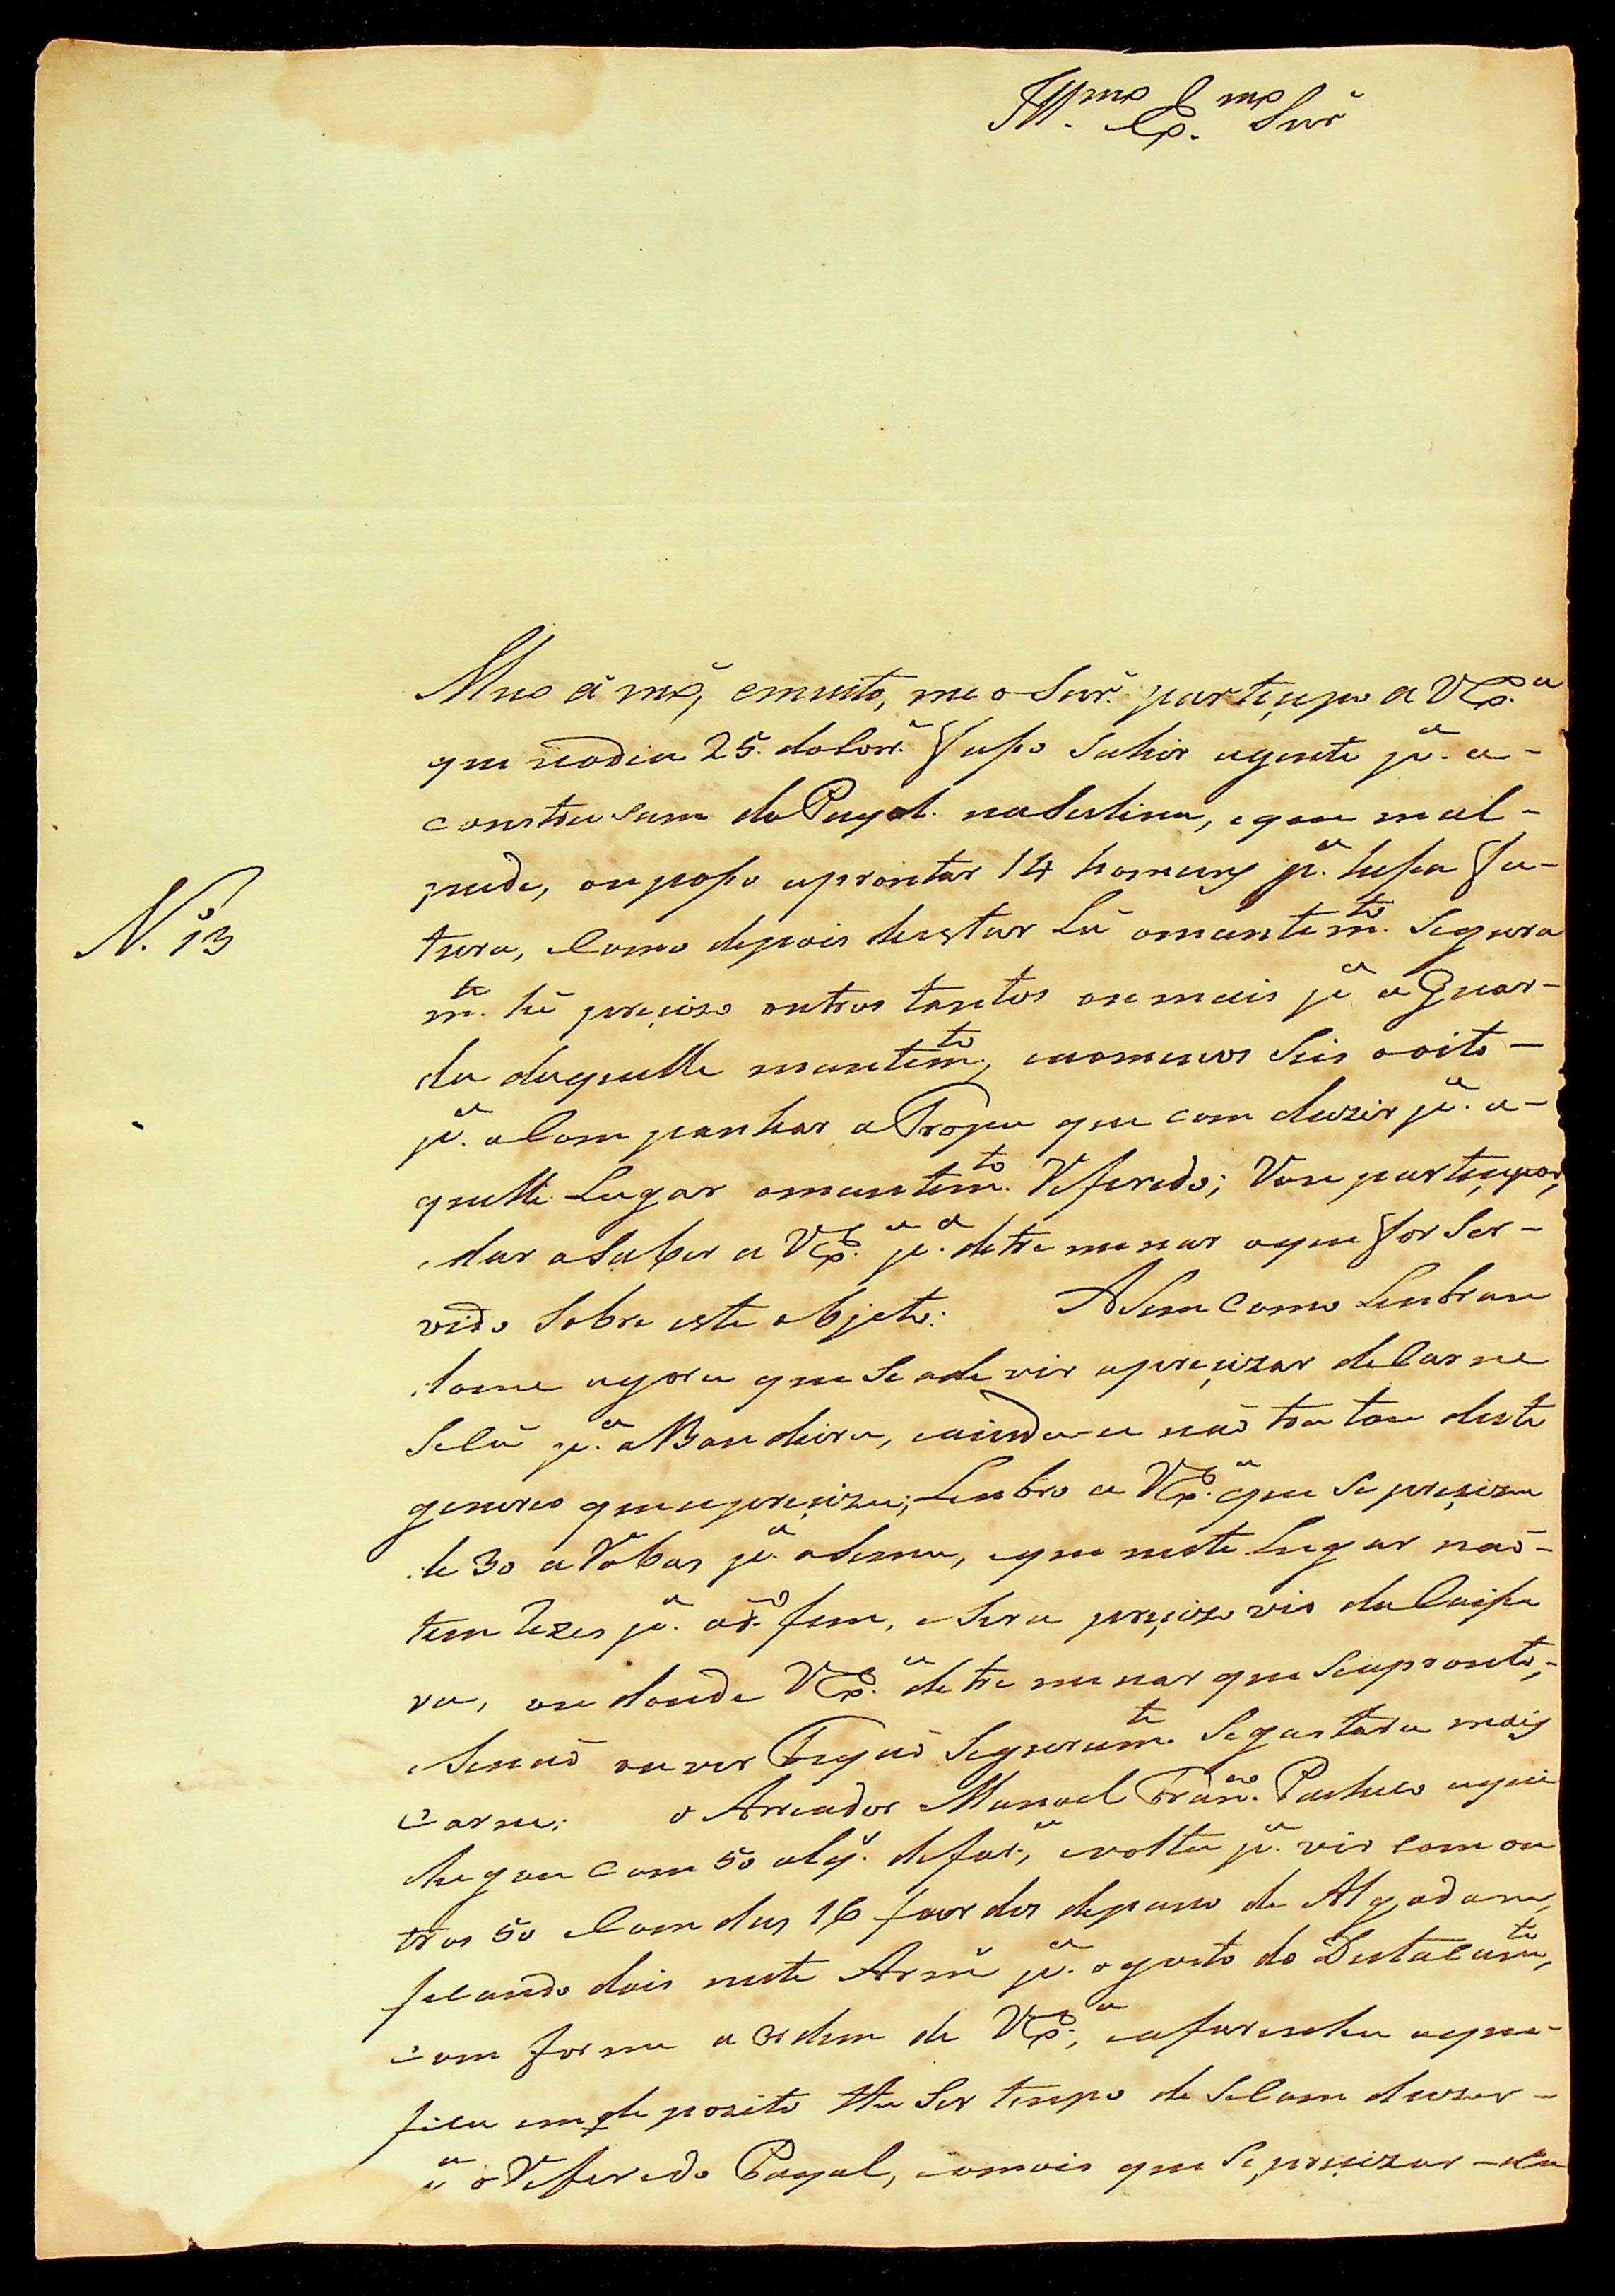 Ill.mo Ex.mo Snr̃
Meo ámo, emuito, meo Snr̃. partiçipo a VEx.a
que nodia 25. docorr.e faço sahir agente p.a a-
constru sam do Payol. nadestina, eque mal-
pude, ou poso aprontar 14 homens p.a hesa fa-
tura, Como depois deestar Lá omantem.to Segura
N. 13
m.te hé preçizo outros tantos oumais p.a a Guar-
da daquelle mantem.to, eaomenos Seis aoito-
p.a aCompanhar aTropa que com duzir p.a a-
quelle Lugar omantem.to Referido; Vou partiçipar,
edar aSaber a VEx.a p.a detre menar oque for Ser-
vido Sobre este objeto: ASim Como Lenbran
dome agora que Se ade vir apreçizar deCarne
Selá p.a aBandeira, eainda-a não tratou deste
genero que apreçiza; Lenbro a VEx.a que Se preçiza
de 30 aRobas p.a aSima, eque neste Lugar não-
tem Rezes p.a o d.o fim, eSera preçizo vir da Caisa
ra, ou donde VEx.a detre menar que Seapronte,-
eSenão ouver Feijão Seguram.te Segastara mais
carne: o Arreador Manoel Fran.co Pacheco aqui
chegou com 50 alq.s defar.a, evolta p.a vir com ou
tros 50 eCom dus 16 fardos depano de Algodam,
ficando dois neste Arm. p.a ogasto do Destacam.to,
com forme a ordem de VEx.a; eafarinha aqui-
fica emdeposito the Ser tenpo de SeCom duzir-
p.a oReferido Payol, eomais que Sepreçizar-da